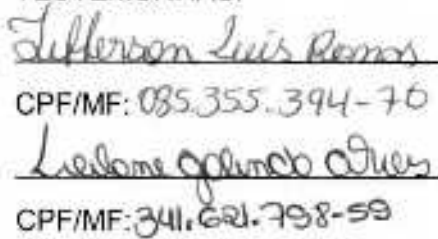 Jefferson Luis Ramos
CPF/MF: 085.355.394-70
Galindo Alves
CPF/MF: 341.621.798-59